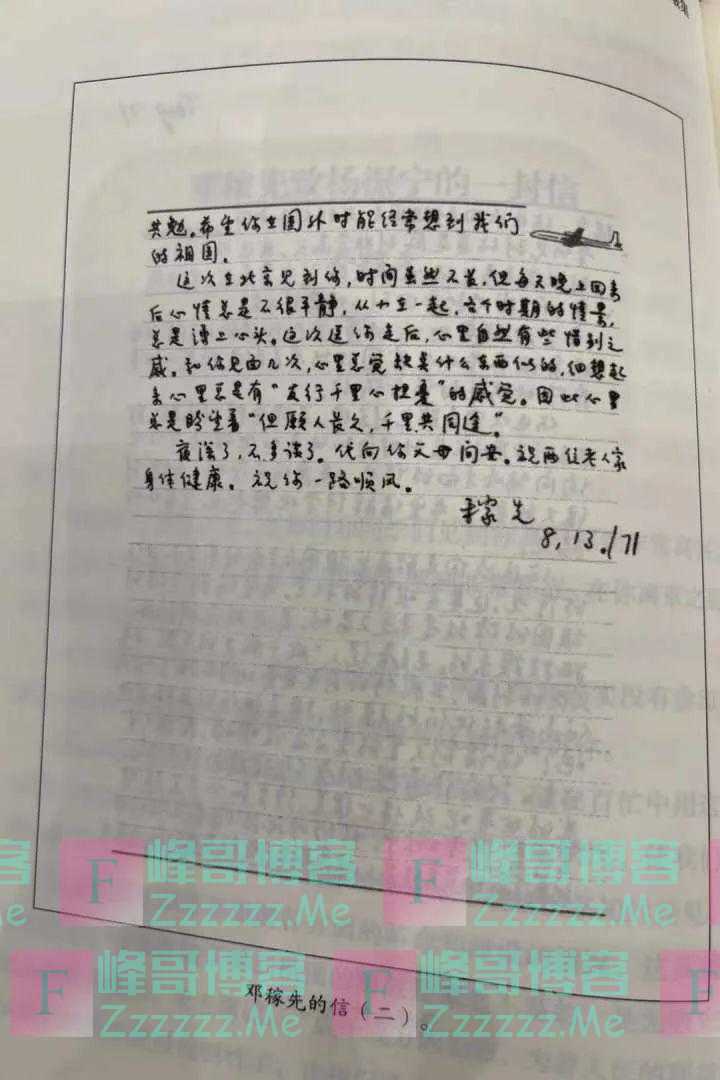 共勉。希望你在国外时能经常想到我们
的祖国。
这次在北京见到你,时间虽然不长,但每天晚上回来
后心情总是不很平静,从小在一起,各个时期的情景,
总是涌上心头。这次送你走后,心里自然有些惜别之
感。和你见面几次,心里总觉缺点什么东西似的,细想起
来心里总是有“友行千里心担忧”的感觉。因此心里
总是盼望着“但愿人长久,千里共同途”。
夜深了,不多谈了。代向你父母问安。祝两位老人家
身体健康。祝你一路顺风。
稼先
8,13./71
邓稼先的信(二)。
F 峰哥博客
Zzzzzz.Me
F 峰哥博客
Zzzzzz.Me
F 峰哥博客
Zzzzzz.Me
F 峰哥博客
Zzzzzz.Me